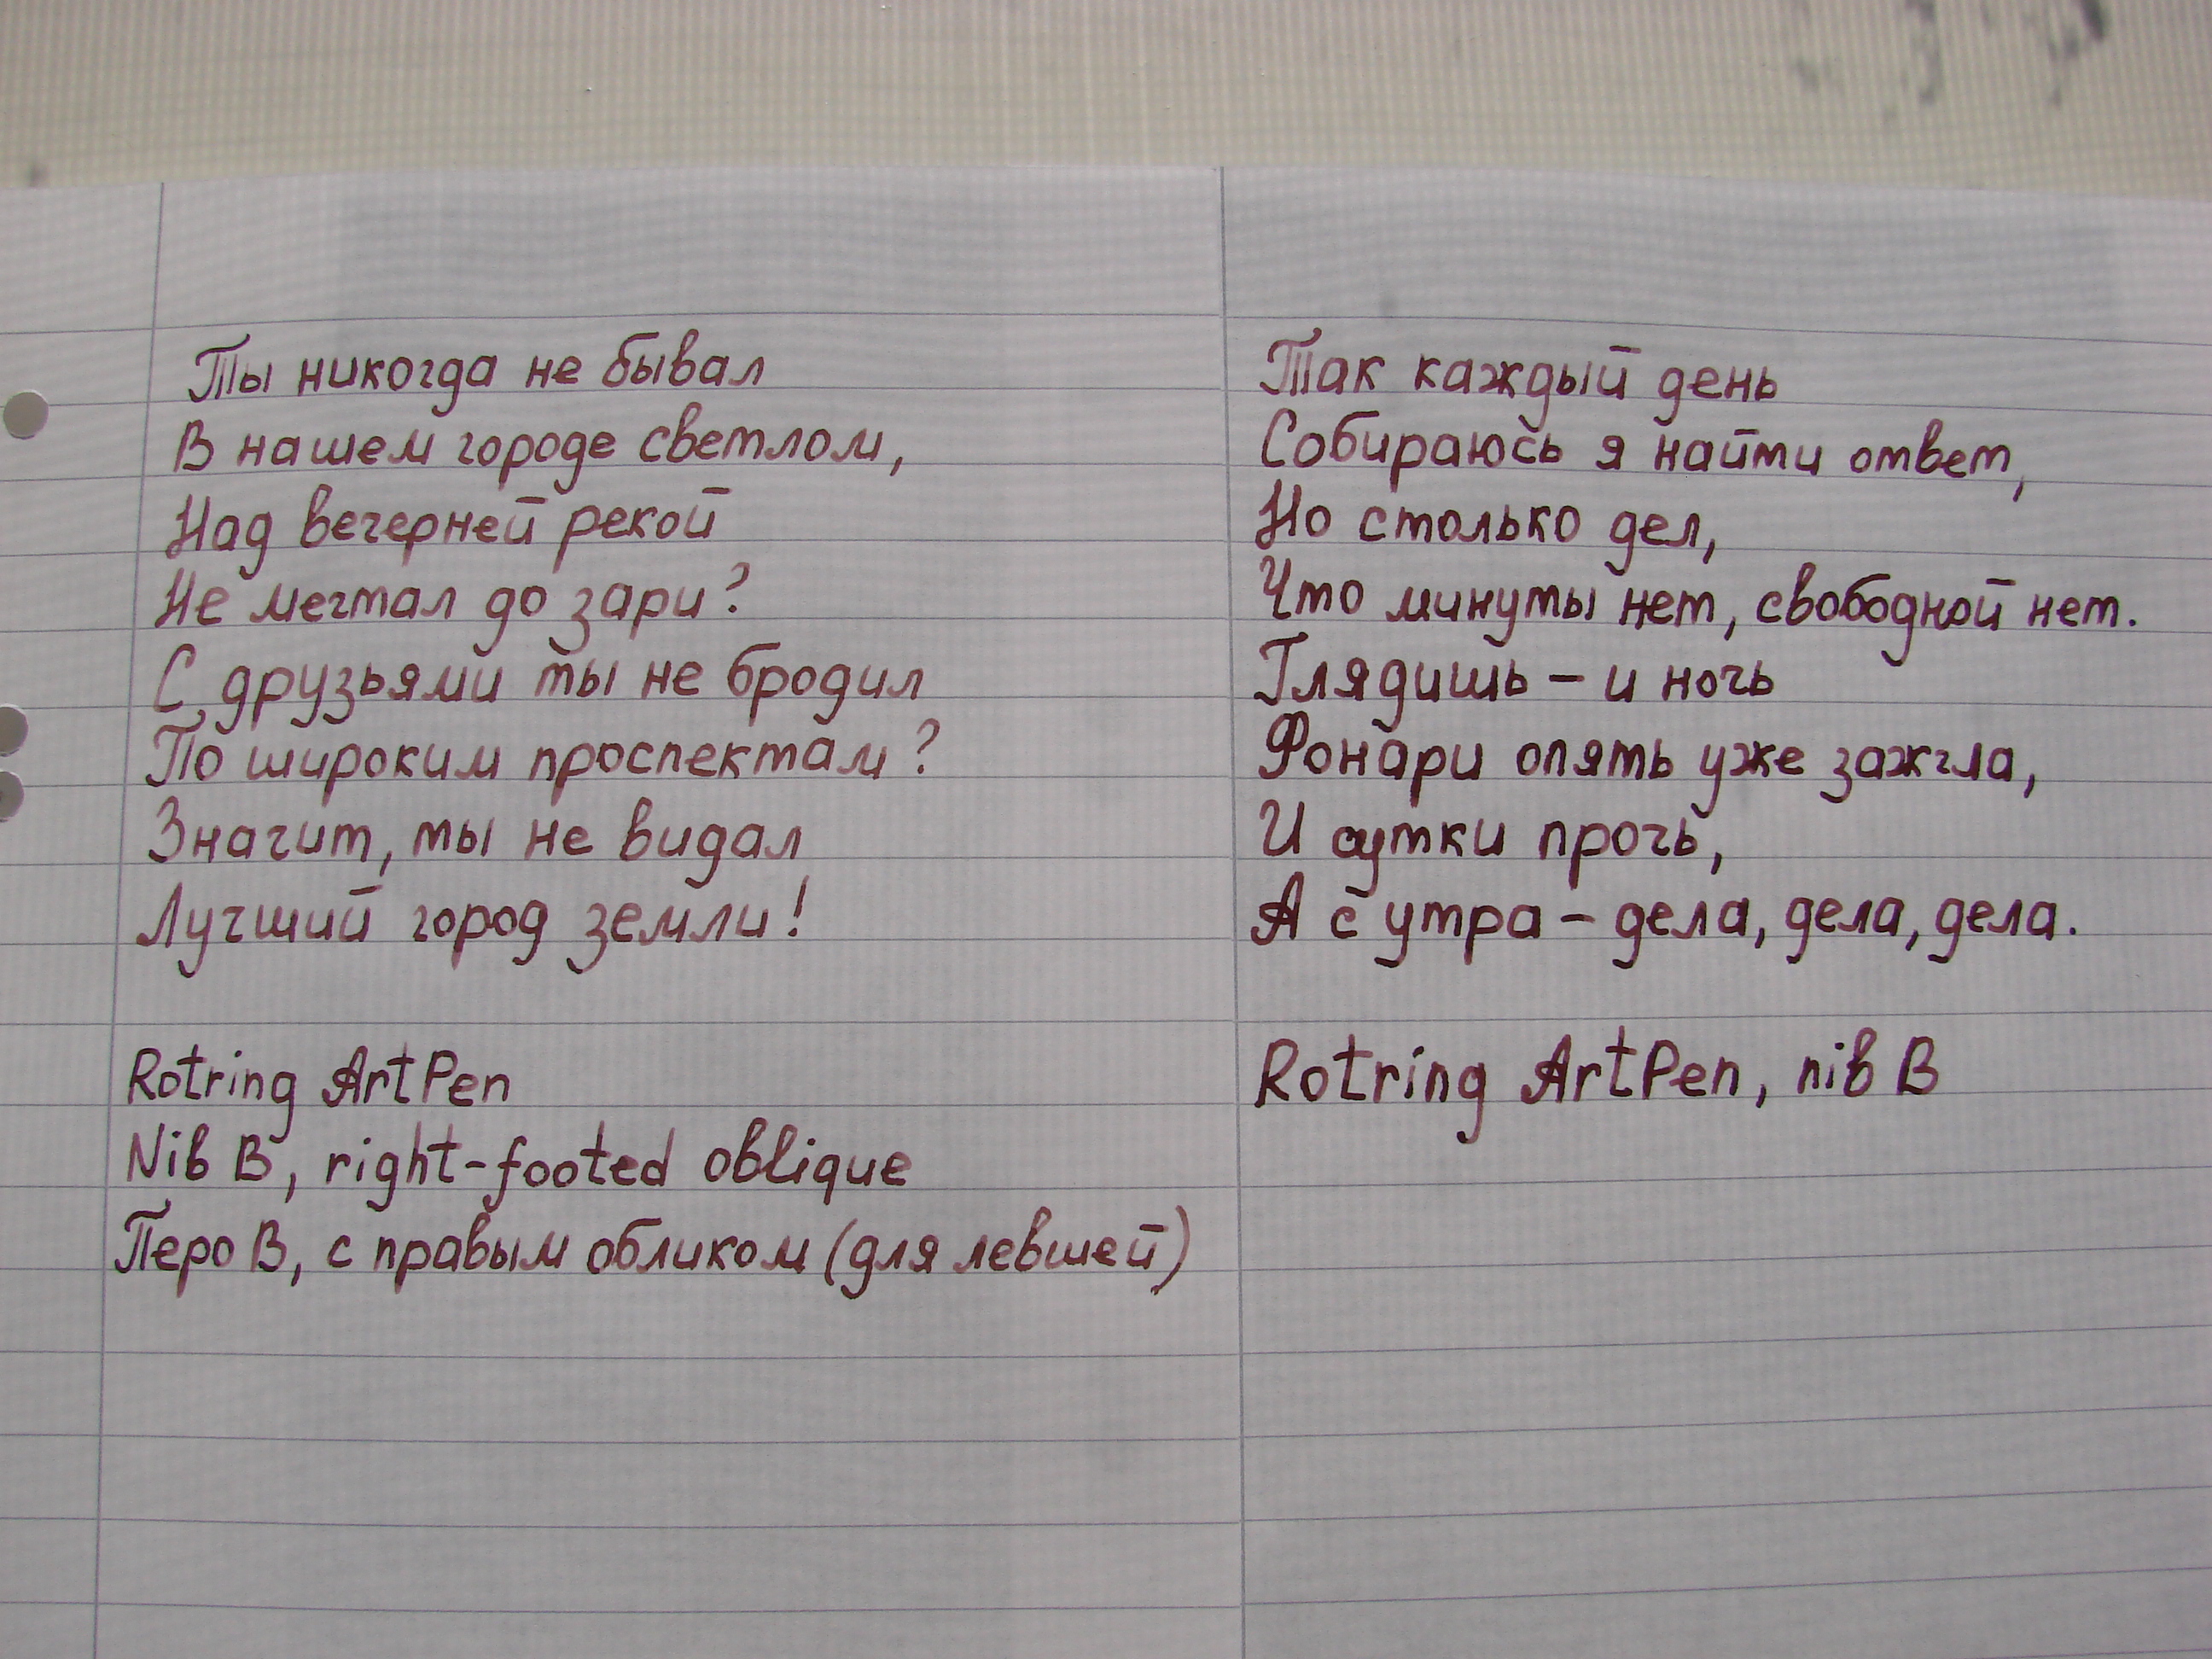 Ты никогда не бывал
В нашем городе светлом,
Над вечерней рекой
Не мечтал до зари?
С друзьями ты не бродил
По широким проспектам?
Значит, ты не видал
Лучший город земли!
Rotring ArtPen
Nib B, right-footed oblique
Перо B, с правым обликом (для левшей)
Так каждый день
Собираюсь я найти ответ,
Но столько дел,
Что минуты нет, свободной нет.
Глядишь – и ночь
Фонари опять уже зажгла,
И сутки прочь,
А с утра – дела, дела, дела.
Rotring ArtPen, nib B